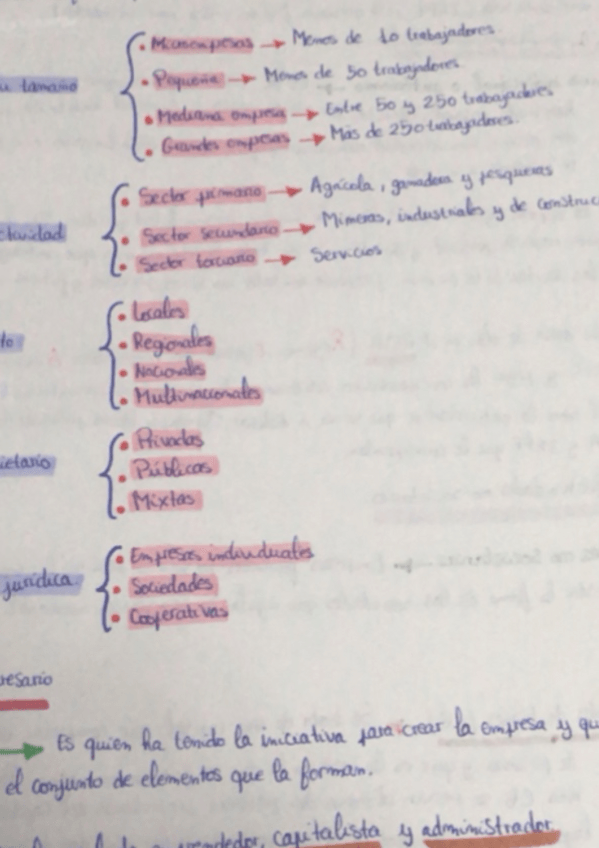 • Microempresas → Menos de 10 trabajadores.
su tamaño • Pequeña → Menos de 50 trabajadores.
• Mediana empresa → Entre 50 y 250 trabajadores
• Grandes empresas → Más de 250 trabajadores.
• Sector primario → Agrícola, ganadera y pesqueras
ctividad • Sector secundario → Mineras, industriales y de construc
• Sector terciario → Servicios
• Locales
to • Regionales
• Nacionales
• Multinacionales
• Privadas
ietario • Públicas
• Mixtas
• Empresas individuales
jurídica • Sociedades
• Cooperativas
resario
→ Es quien ha tenido la iniciativa para crear la empresa y qu
el conjunto de elementos que la forman.
rendedor, capitalista y administrador